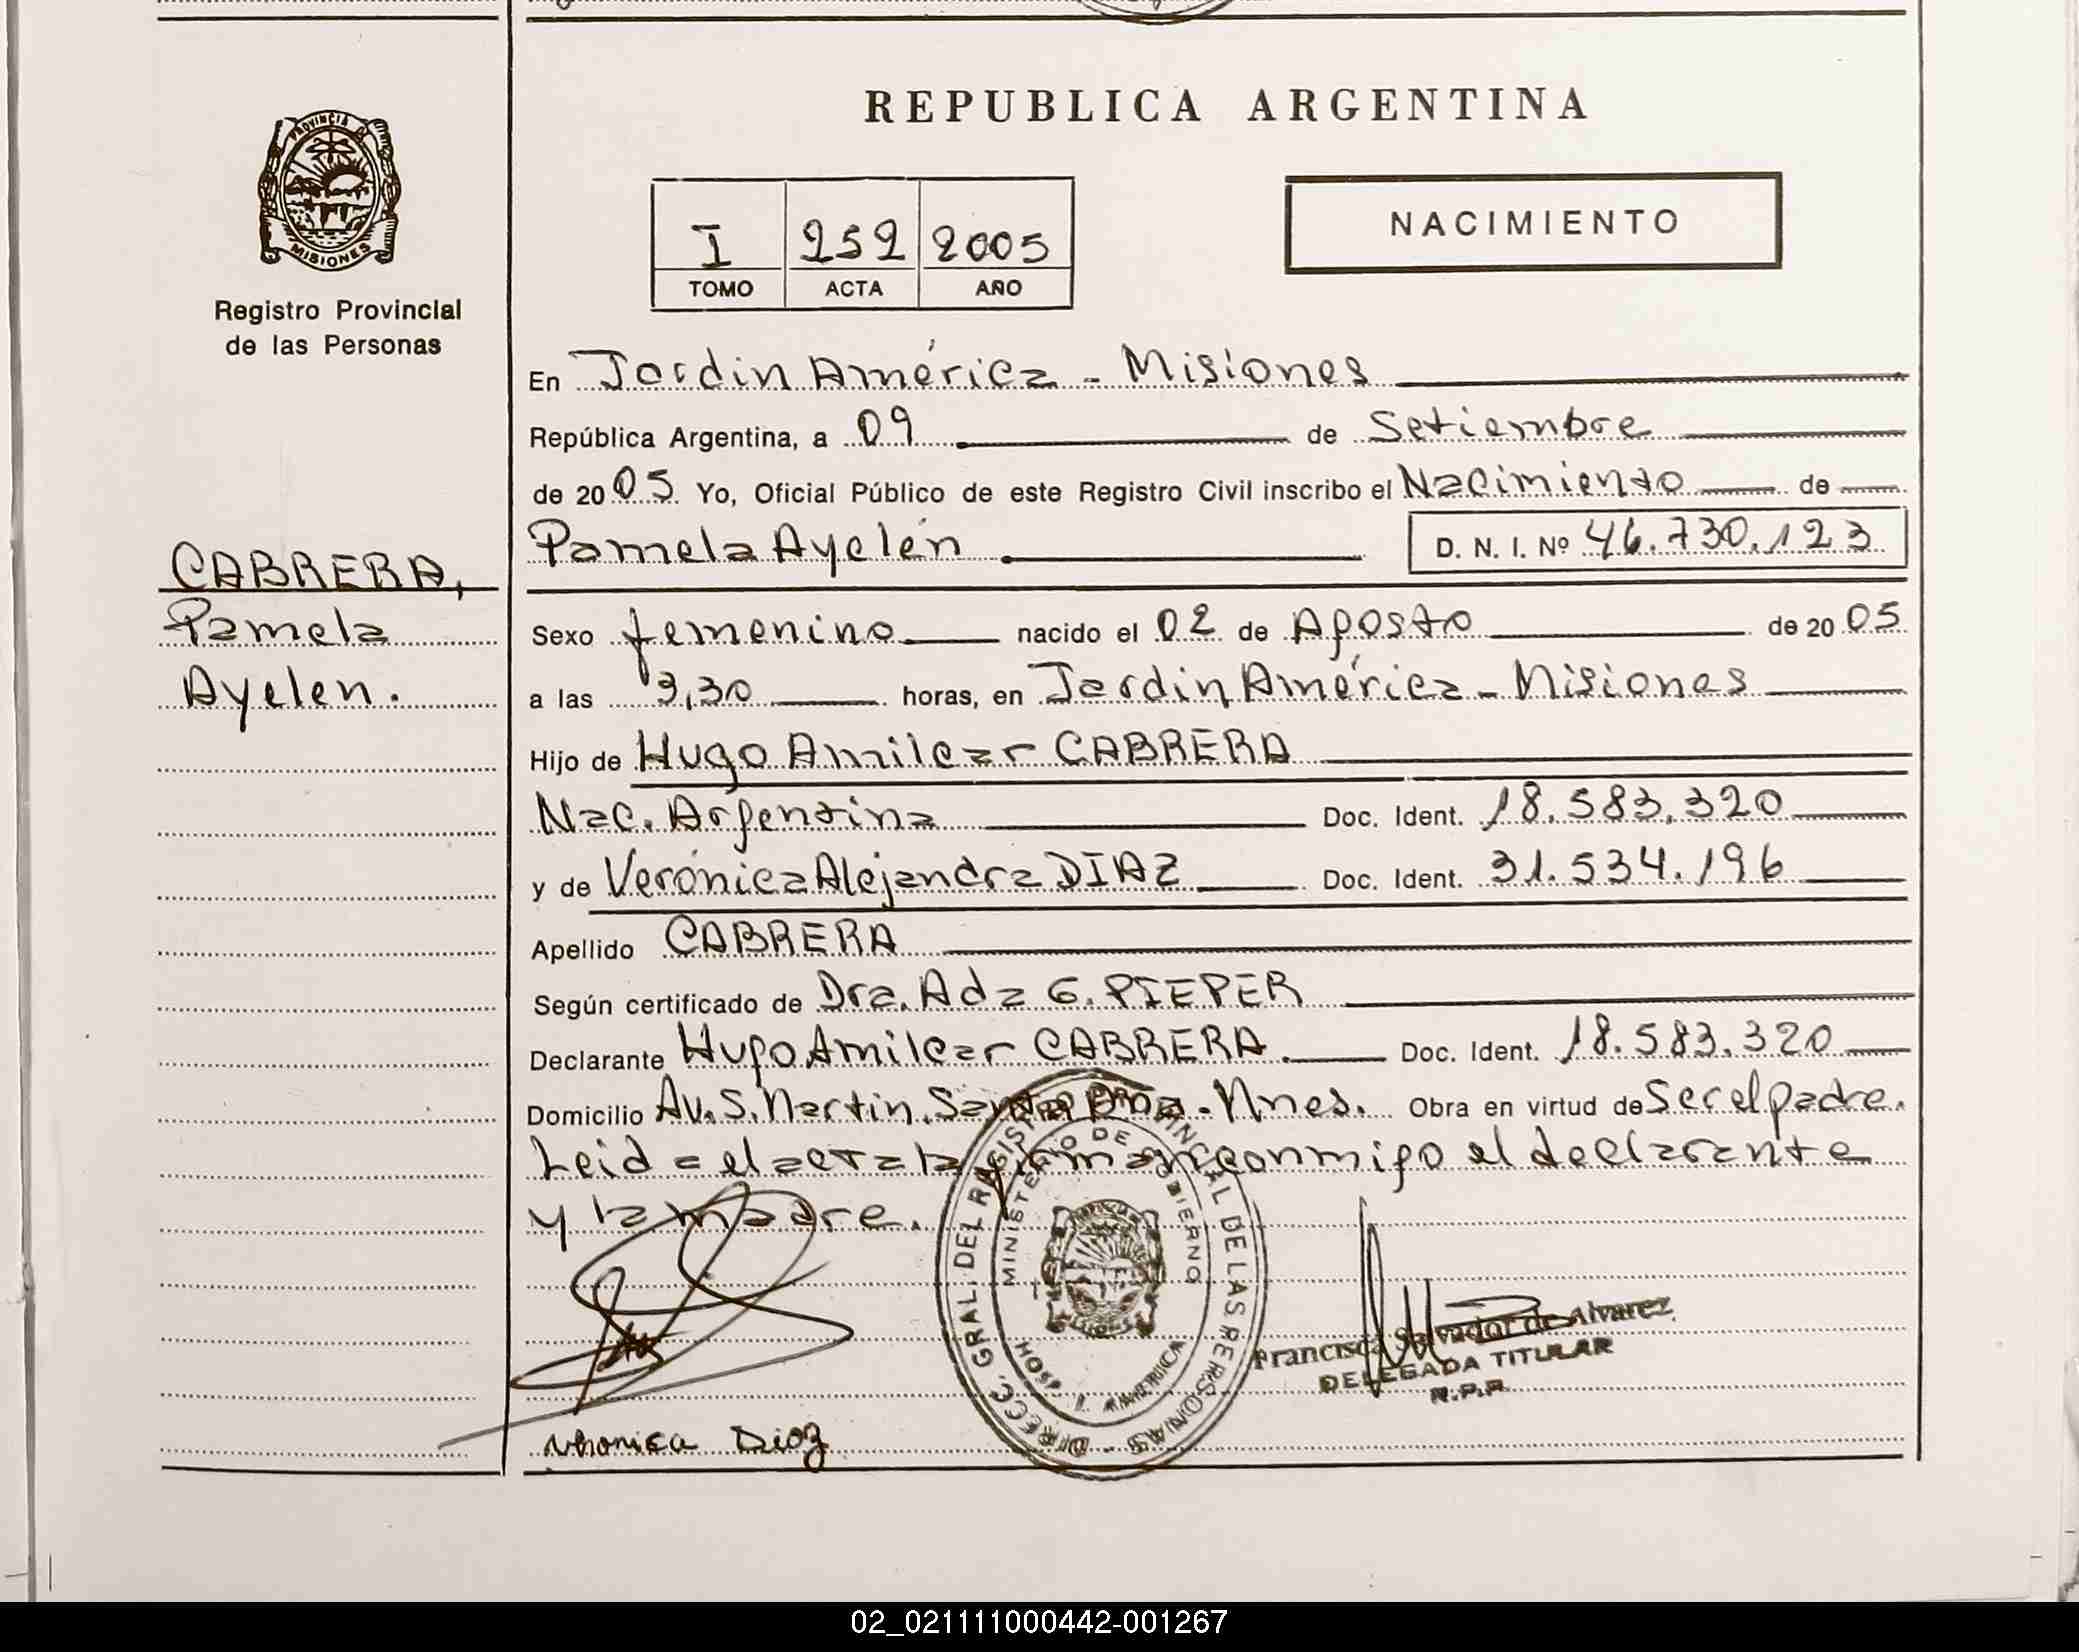 PROVINCIA DE
MISIONES
Registro Provincial
de las Personas
CABRERA,
Pamela
Ayelen.
REPUBLICA ARGENTINA
I 252 2005
TOMO ACTA AÑO
NACIMIENTO
En Jardin América - Misiones
República Argentina, a 09 de Setiembre
de 2005 Yo, Oficial Público de este Registro Civil inscribo el Nacimiento de
Pamela Ayelén D. N. I. Nº 46.730.123
Sexo femenino nacido el 02 de Agosto de 2005
a las 3,30 horas, en Jardin América - Misiones
Hijo de Hugo Amilcar CABRERA
Nac. Argentina Doc. Ident. 18.583.320
y de Verónica Alejandra DIAZ Doc. Ident. 31.534.196
Apellido CABRERA
Según certificado de Dra. Ada G. PIEPER
Declarante Hugo Amilcar CABRERA. Doc. Ident. 18.583.320
Domicilio Av. S. Martin. Santa Ana - Mnes. Obra en virtud de Ser el padre.
Leida el acta la firman conmigo el declarante
y la madre.
DIRECC. GRAL. DEL REGISTRO PROVINCIAL DE LAS PERSONAS
MINISTERIO DE GOBIERNO
HOSP. J. AMERICA
Francisca Salvador de Alvarez
DELEGADA TITULAR
R.P.P.
Veronica Diaz
02_021111000442-001267